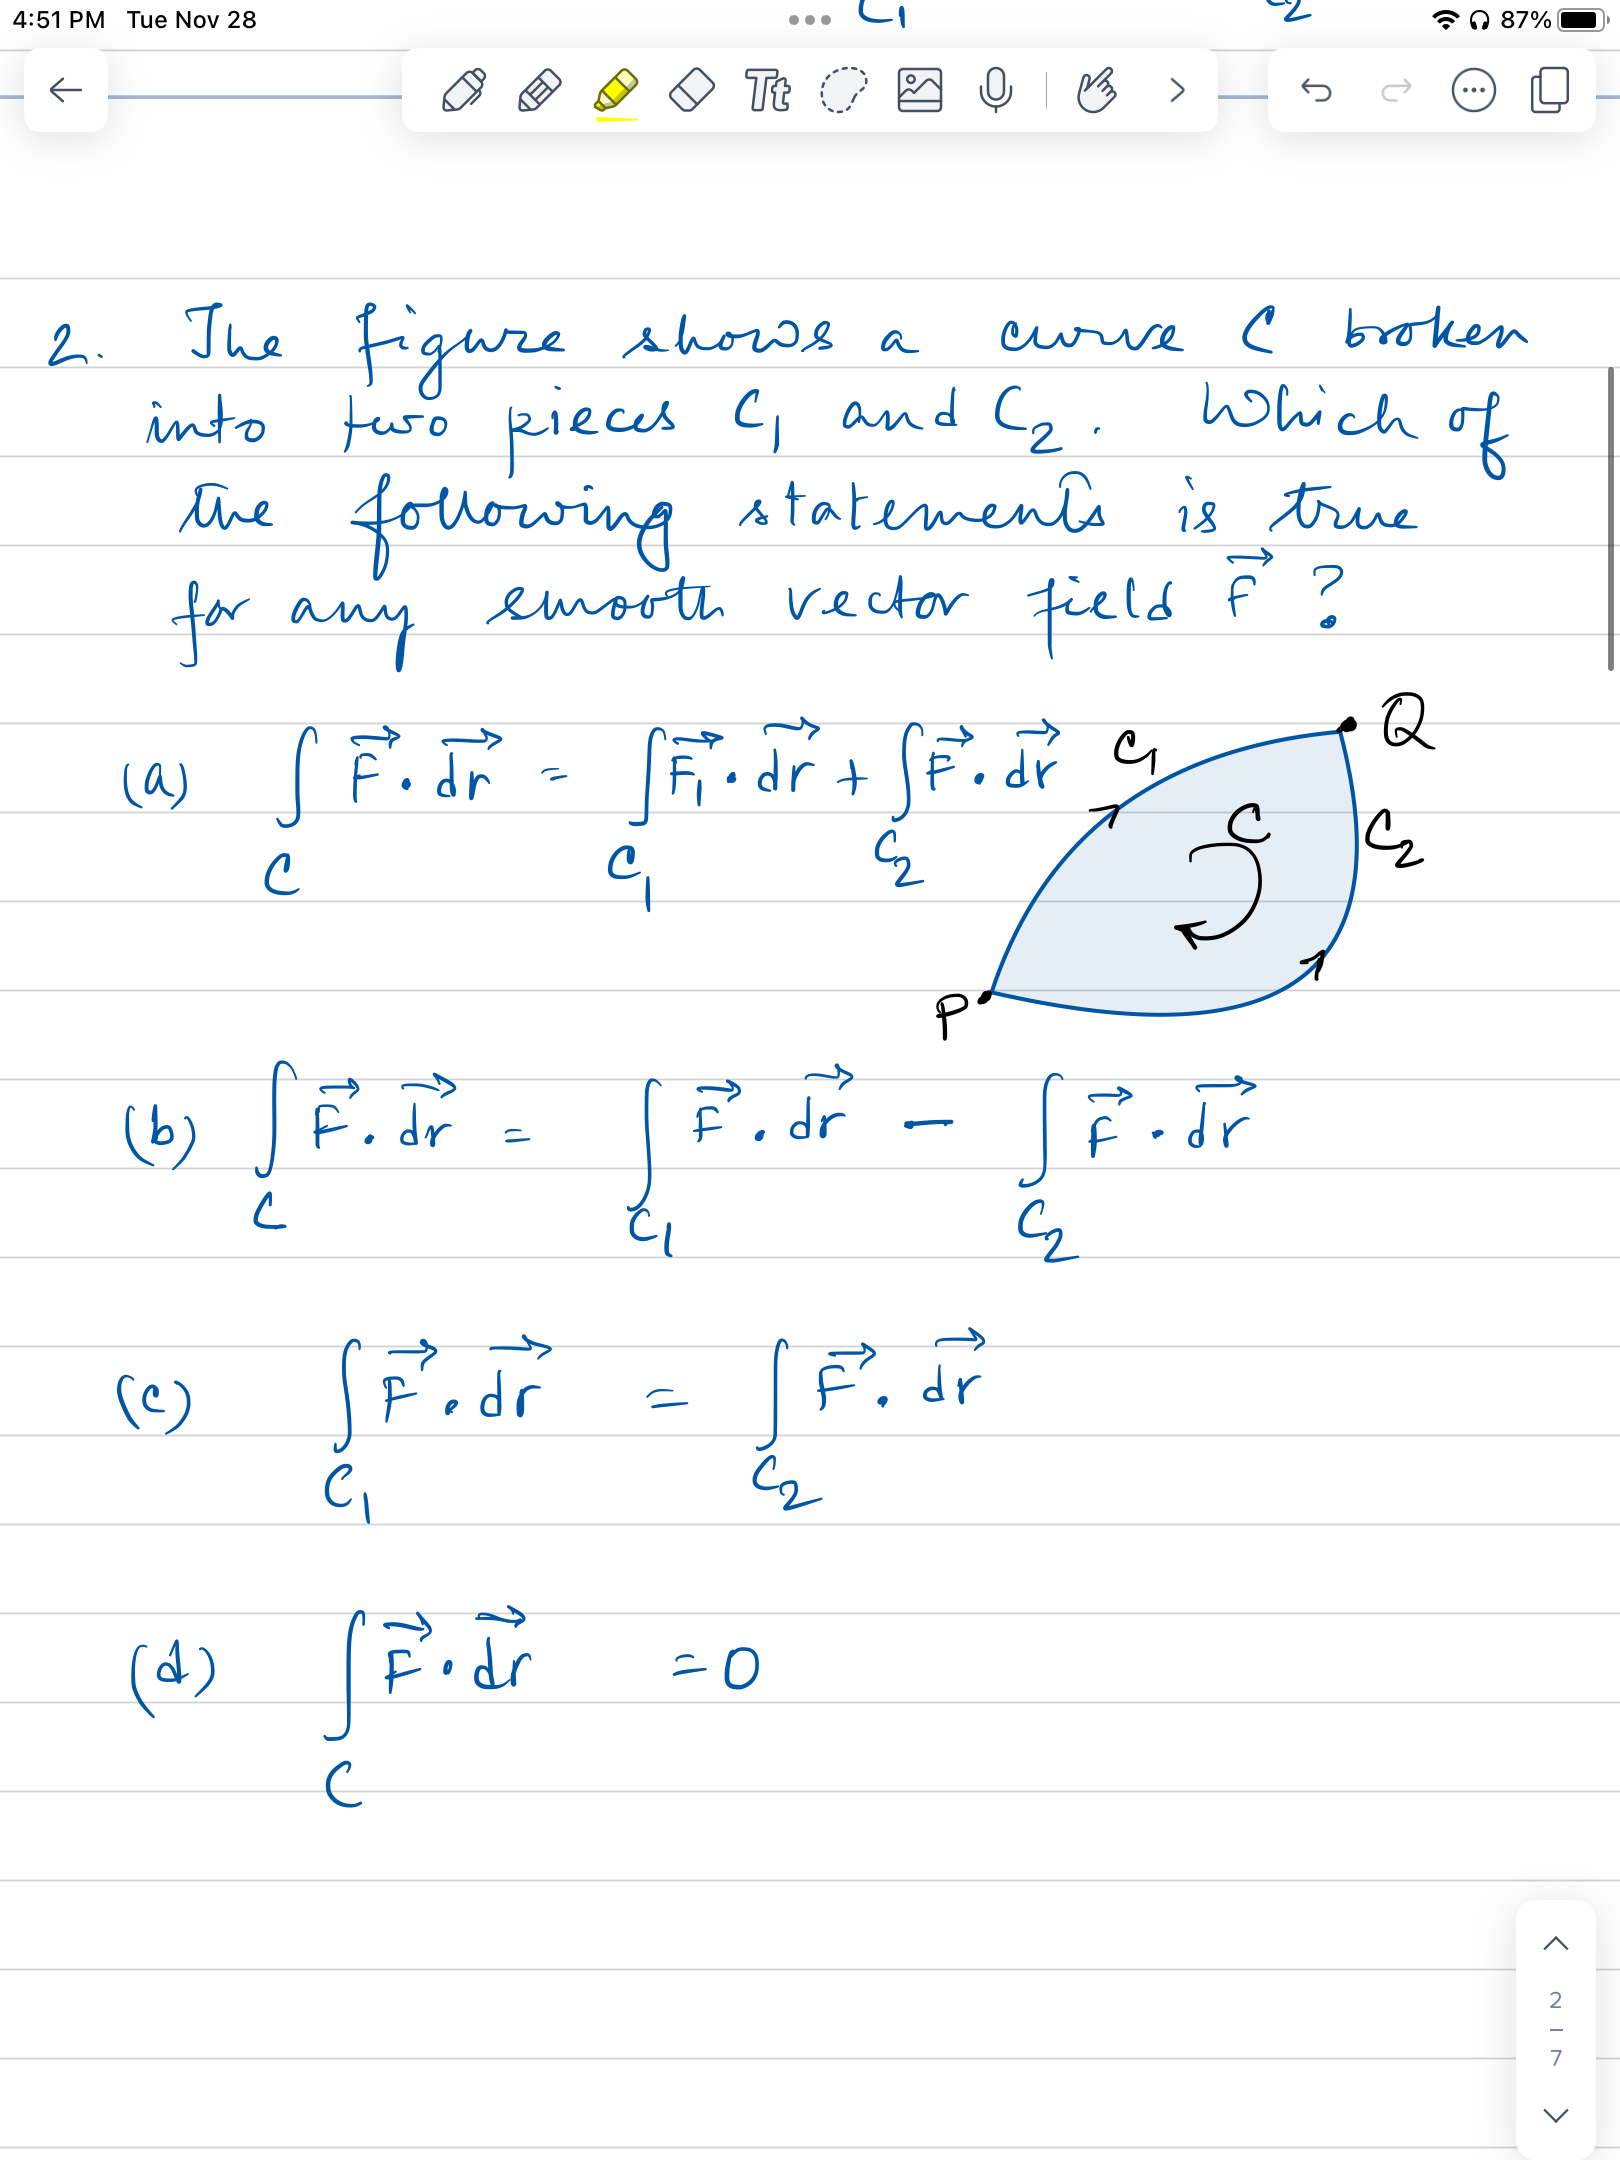 4:51 PM Tue Nov 28
87%
C₁ C₂
Tt
2. The figure shows a curve C broken
into two pieces C₁ and C₂. Which of
the following statements is true
for any smooth vector field F⃗ ?
(a) ∫_C F⃗ · dr⃗ = ∫_C₁ F⃗₁ · dr⃗ + ∫_C₂ F⃗ · dr⃗
Q
C₁
C
C₂
P
(b) ∫_C F⃗ · dr⃗ = ∫_C₁ F⃗ · dr⃗ − ∫_C₂ F⃗ · dr⃗
(c) ∫_C₁ F⃗ · dr⃗ = ∫_C₂ F⃗ · dr⃗
(d) ∫_C F⃗ · dr⃗ = 0
2
7